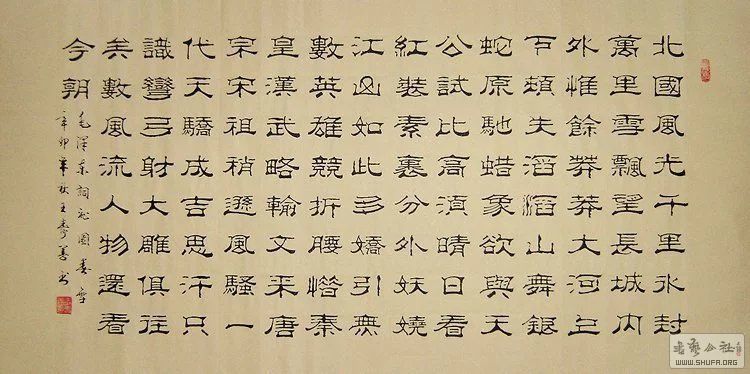 北國風光千里冰封
萬里雪飄望長城內
外惟餘莽莽大河上
下頓失滔滔山舞銀
蛇原馳蜡象欲與天
公試比高須晴日看
紅裝素裹分外妖嬈
江山如此多嬌引無
數英雄競折腰惜秦
皇漢武略輸文采唐
宗宋祖稍遜風騷一
代天驕成吉思汗只
識彎弓射大雕俱往
矣數風流人物還看
今朝
毛澤東詞沁園春雪
辛卯年秋王壽善書
書藝公社
WWW.SHUFA.ORG